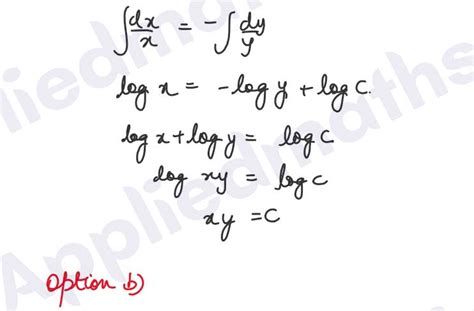 ∫dx/x = -∫dy/y
log x = -log y + log C.
log x + log y = log C
log xy = log C
xy = C
Option b)
Appliedmaths